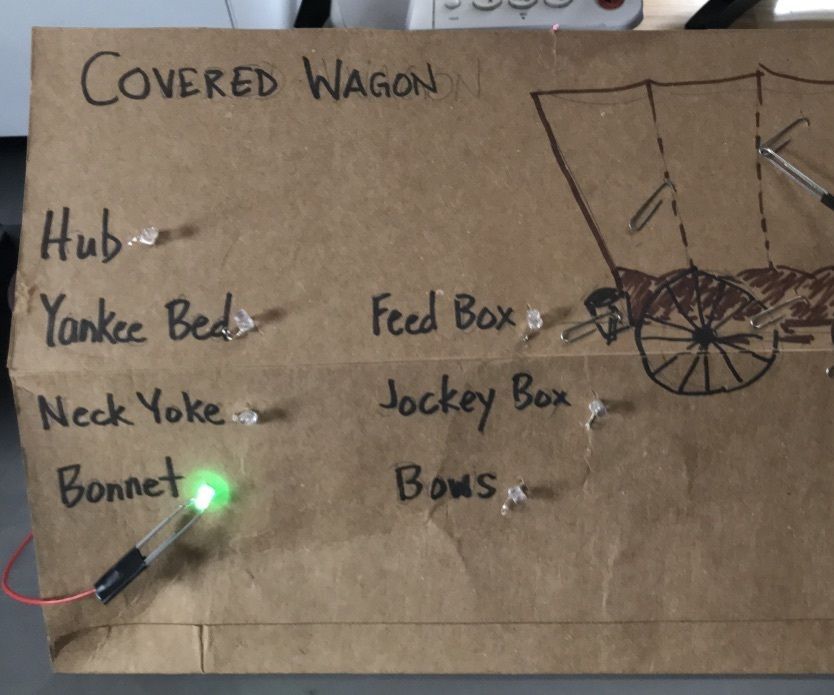 COVERED WAGON
Hub
Yankee Bed
Feed Box
Neck Yoke
Jockey Box
Bonnet
Bows